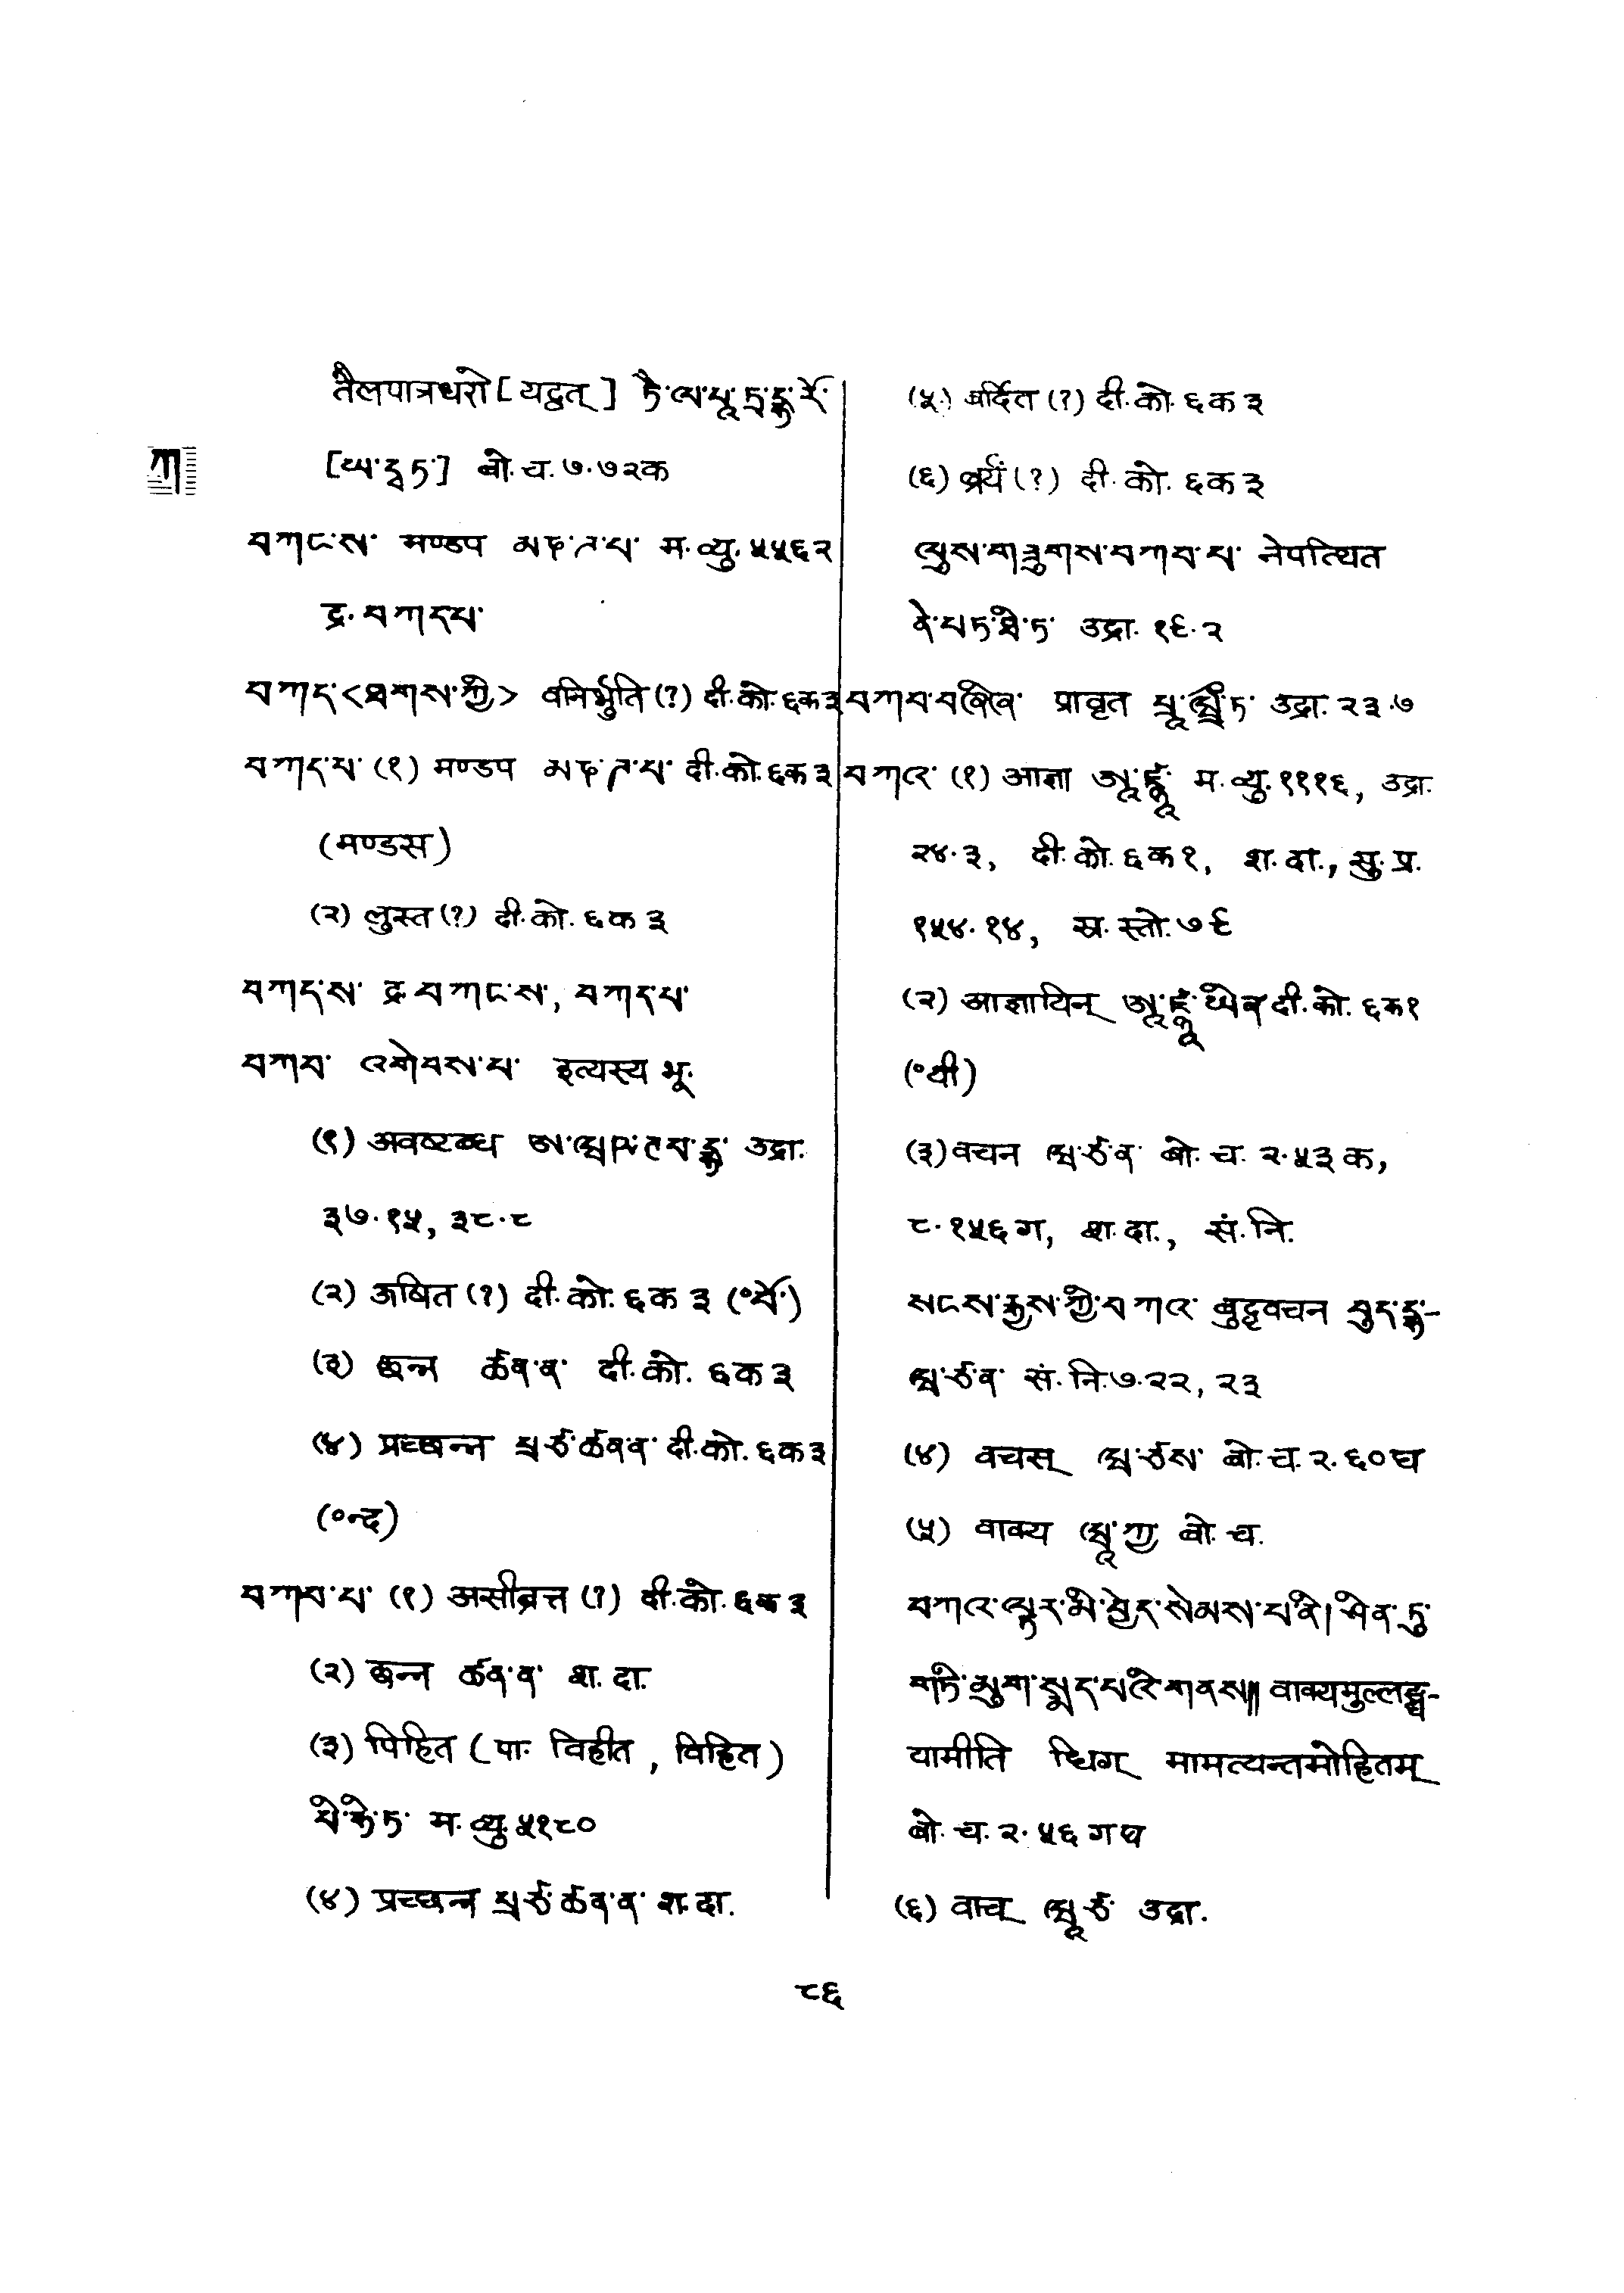 तैलपात्रधरो [यद्वत्] ཏཻ་ལ་པཱ་ཏྲ་དྷ་རོ་
[ཡ་དྭ་ཏ་] बो. च. ७.७२क
ཀ
བཀང་ས་ मण्डप མཎ་ཌ་པ་ म. व्यु. ५५६२
द्र. བཀད་པ་
བཀད་<ཐགས་ཀྱི> वनिर्भुति (?) दी. को. ६क३
བཀད་པ་ (१) मण्डप མཎ་ཌ་པ་ दी. को. ६क३
(मण्डस)
(२) लुस्त (?) दी. को. ६क३
བཀད་ས་ द्र. བཀང་ས་, བཀད་པ་
བཀབ་ འགེབས་པ་ इत्यस्य भू.
(१) अवष्टब्ध ཨ་ཝ་ཥ་ཊ་བ་དྷ་ उद्रा.
३७.१५, ३८.८
(२) अषित (?) दी. को. ६क३
(३) छन्न ཚན་ན་ दी. को. ६क३
(४) प्रच्छन्न པྲ་ཙ་ཚན་ན་ दी. को. ६क३
(०न्द)
བཀབ་པ་ (१) (?) दी. को. ६क३
(२) छन्न ཚན་ན་ श. दा.
(३) पिहित (पा. विहीत, विहित)
པི་ཧི་ཏ་ म. व्यु. ५१८०
(४) प्रच्छन्न པྲ་ཙ་ཚན་ན་ श. दा.
(५) (?) दी. को. ६क३
(६) (?) दी. को. ६क३
ལུས་གཟུགས་བཀབ་པ་ नेपत्थित
ནེ་པ་ཏ་ཐི་ཏ་ उद्रा. १९.२
བཀབ་བཞིན་ प्रावृत པྲཱ་ཝྲྀ་ཏ་ उद्रा. २३.७
བཀའ་ (१) आज्ञा ཨཱ་ཛྙཱ་ म. व्यु. १११६, उद्रा.
२४.३, दी. को. ६क१, श. दा., सु. प्र.
१५४.१४, स्र. स्तो. ७९
(२) आज्ञायिन् ཨཱ་ཛྙཱ་ཡིན་ दी. को. ६क१
(०यी)
(३) वचन ཝ་ཙ་ན་ बो. च. २.५३क,
८.१५६ग, श. दा., सं. नि.
སངས་རྒྱས་ཀྱི་བཀའ་ बुद्धवचन བུད་དྷ་-
ཝ་ཙ་ན་ सं. नि. ७.२२, २३
(४) वचस् ཝ་ཙས་ बो. च. २.६०घ
(५) वाक्य ཝཱ་ཀྱ་ बो. च.
བཀའ་ལྟར་མི་བྱེད་སེམས་པ་ནི། ཤིན་ཏུ་
གཏི་མུག་སྨད་པའི་གནས༎ वाक्यमुल्लङ्घ-
यामीति धिग् मामत्यन्तमोहितम्
बो. च. २.५६गघ
(६) वाच् ཝཱ་ཙ་ उद्रा.
८६